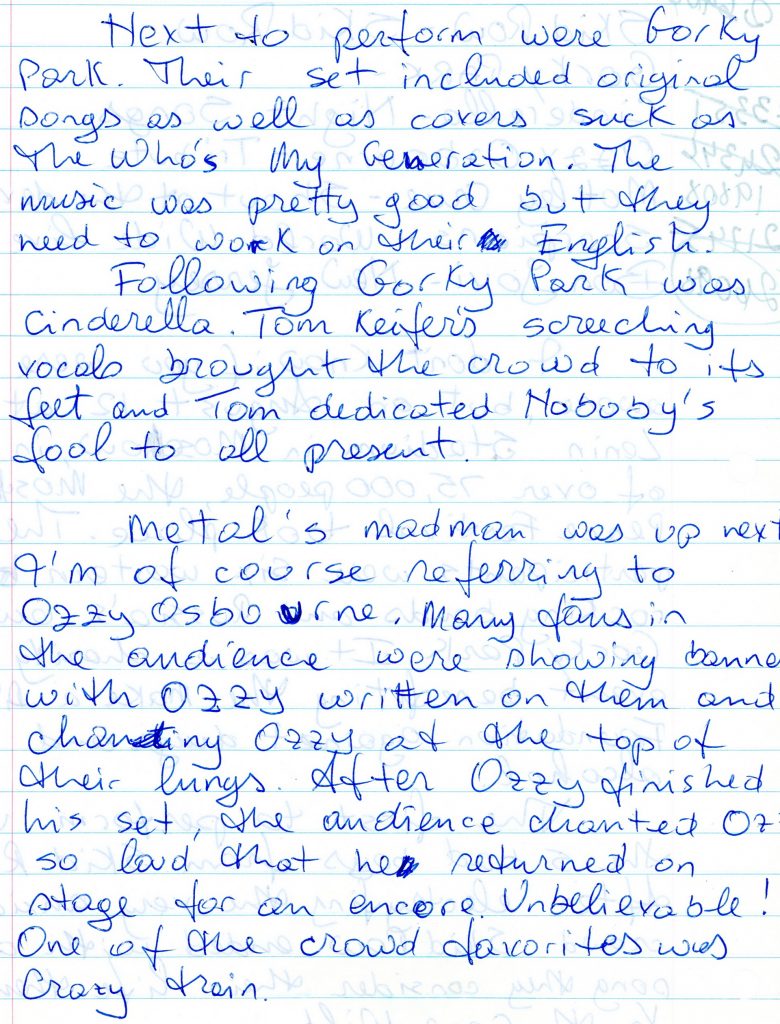 Next to perform were Gorky
Park. Their set included original
songs as well as covers suck as
the Who's My Generation. The
music was pretty good but they
need to work on their English.
Following Gorky Park was
Cinderella. Tom Keifer's screeching
vocals brought the crowd to its
feet and Tom dedicated Noboby's
fool to all present.
Metal's madman was up next
I'm of course referring to
Ozzy Osbourne. Many fans in
the audience were showing banne
with OZZY written on them and
chanting Ozzy at the top of
their lungs. After Ozzy finished
his set, the audience chanted Oz
so loud that he returned on
stage for an encore. Unbelievable!
One of the crowd favorites was
Crazy train.